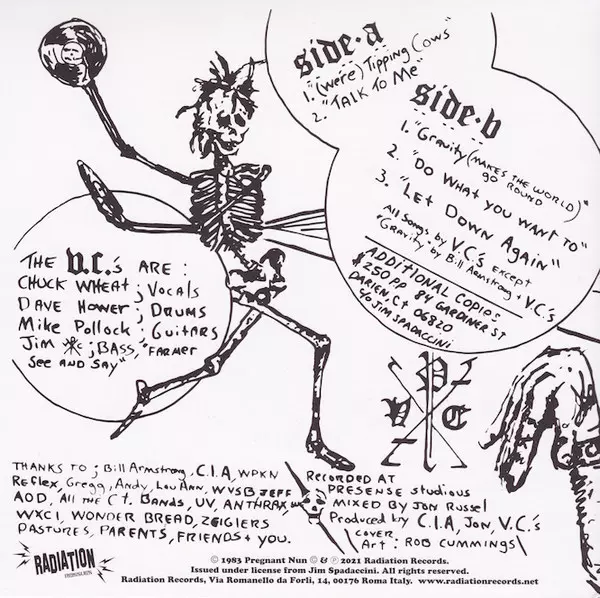 side·a
1. "(we're) Tipping Cows"
2. "Talk To Me"
side·b
1. "Gravity (MAKES THE WORLD)"
go ROUND
2. "Do What you WANT to"
3. "Let Down Again"
All Songs by V.C.'s except
"Gravity" by Bill Armstrong · V.C.'s
ADDITIONAL COPIES
$2.50 PP 84 GARDINER ST
DARIEN CT 06820
c/o JIM SPADACCINI
THE V.C.'s ARE :
CHUCK WHEAT ; Vocals
DAVE Hower ; DRUMS
Mike Pollock : Guitars
Jim ; BASS, "FARMER
See AND SAY"
V P C
THANKS TO ; Bill Armstrong, C.I.A, WPKN
Reflex, Gregg, Andy, Lou Ann, WVSB JEFF
AOD, All the CT. Bands, UV, ANTHRAX
WXCI, WONDER BREAD, ZEIGIERS
PASTURES, PARENTS, FRIENDS + YOU.
RECORDED AT
PRESENSE studious
MIXED BY JON RUSSEL
Produced by C.I.A, JON, V.C.'s
COVER
Art : ROB CUMMINGS
RADIATION
© 1983 Pregnant Nun © & ℗ 2021 Radiation Records.
Issued under license from Jim Spadaccini. All rights reserved.
Radiation Records, Via Romanello da Forlì, 14, 00176 Roma Italy. www.radiationrecords.net